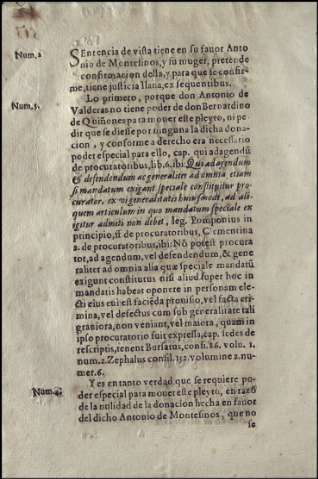 Num. 2
SEntencia de vista tiene en su fauor Anto
nio de Montesinos, y su muger, pretende
confirmacion della, y para que se confir-
me, tiene justicia llana, ex sequentibus.
Num. 3.
Lo primero, porque don Antonio de
Valderas no tiene poder de don Bernardino
de Quiñones para mouer este pleyto, ni pe-
dir que se diesse por ninguna la dicha dona-
cion, y conforme a derecho era necessario
poder especial para ello, cap. qui ad agendũ
de procuratoribus, lib. 6. ibi: Qui ad agendum
& defendendum ac generaliter ad omnia etiam
si mandatum exigant speciale constituitur pro-
curator. ex vi generalitatis huiusmodi, ad ali-
quem articulum in quo mandatum speciale ex
igitur admitti non debet, leg. Pomponius in
principio, ff. de procuratoribus, Clementina
2. de procuratoribus, ibi: Nõ potest procura
tor, ad agendum, vel defendendum, & gene
raliter ad omnia alia quæ speciale mandatũ
exigunt constitutus nisi aliud super hoc in
mandatis habeat opponere in personam ele-
cti eius cui est facieda prouisio, vel facta cri-
mina, vel defectus cum sub generalitate tali
grauiora, non veniant, vel maiora, quam in
ipso procuratorio fuit expressa, cap. sedes de
rescriptis, tenent Bursatus, consi. 26. volu. 1.
num. 2. Zephalus consil. 152. volumine 2. nu-
mer. 6.
Num. 4.
Y es en tanto verdad que se requiere po-
der especial para mouer este pleyto, en razõ
de la nulidad de la donacion hecha en fauor
del dicho Antonio de Montesinos, que no
se